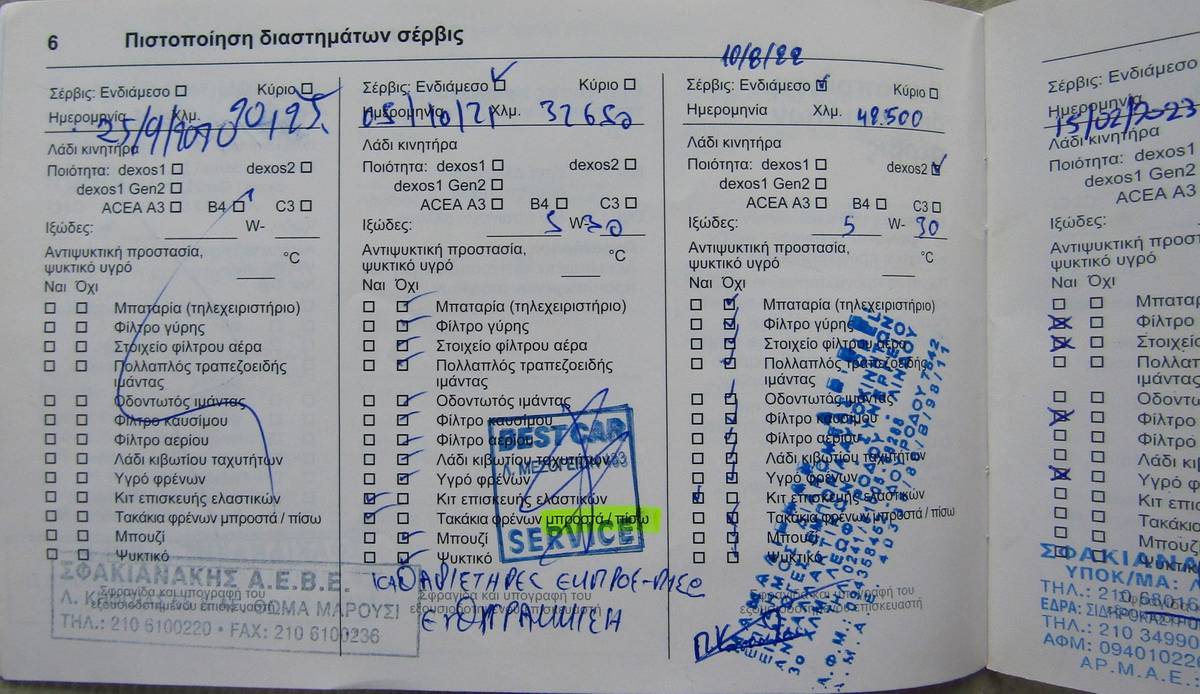 6 Πιστοποίηση διαστημάτων σέρβις
Σέρβις: Ενδιάμεσο Κύριο
Ημερομηνία Χλμ.
25/9/2020
Λάδι κινητήρα
Ποιότητα: dexos1 dexos2
dexos1 Gen2
ACEA A3 B4 C3
Ιξώδες: W-
Αντιψυκτική προστασία,
ψυκτικό υγρό °C
Ναι Όχι
Μπαταρία (τηλεχειριστήριο)
Φίλτρο γύρης
Στοιχείο φίλτρου αέρα
Πολλαπλός τραπεζοειδής
ιμάντας
Οδοντωτός ιμάντας
Φίλτρο καυσίμου
Φίλτρο αερίου
Λάδι κιβωτίου ταχυτήτων
Υγρό φρένων
Κιτ επισκευής ελαστικών
Τακάκια φρένων μπροστά / πίσω
Μπουζί
Ψυκτικό
Σφραγίδα και υπογραφή του
εξουσιοδοτημένου επισκευαστή
ΣΦΑΚΙΑΝΑΚΗΣ Α.Ε.Β.Ε.
ΜΑΡΟΥΣΙ
ΤΗΛ.: 210 6100220 • FAX: 210 6100236
Σέρβις: Ενδιάμεσο Κύριο
Ημερομηνία Χλμ.
05/10/21 32650
Λάδι κινητήρα
Ποιότητα: dexos1 dexos2
dexos1 Gen2
ACEA A3 B4 C3
Ιξώδες: 5 W- 30
Αντιψυκτική προστασία,
ψυκτικό υγρό °C
Ναι Όχι
Μπαταρία (τηλεχειριστήριο)
Φίλτρο γύρης
Στοιχείο φίλτρου αέρα
Πολλαπλός τραπεζοειδής
ιμάντας
Οδοντωτός ιμάντας
Φίλτρο καυσίμου
Φίλτρο αερίου
Λάδι κιβωτίου ταχυτήτων
Υγρό φρένων
Κιτ επισκευής ελαστικών
Τακάκια φρένων μπροστά / πίσω
Μπουζί
Ψυκτικό
BEST CAR
SERVICE
Σφραγίδα και υπογραφή του
εξουσιοδοτημένου επισκευαστή
10/8/22
Σέρβις: Ενδιάμεσο Κύριο
Ημερομηνία Χλμ. 48.500
Λάδι κινητήρα
Ποιότητα: dexos1 dexos2
dexos1 Gen2
ACEA A3 B4 C3
Ιξώδες: 5 W- 30
Αντιψυκτική προστασία,
ψυκτικό υγρό °C
Ναι Όχι
Μπαταρία (τηλεχειριστήριο)
Φίλτρο γύρης
Στοιχείο φίλτρου αέρα
Πολλαπλός τραπεζοειδής
ιμάντας
Οδοντωτός ιμάντας
Φίλτρο καυσίμου
Φίλτρο αερίου
Λάδι κιβωτίου ταχυτήτων
Υγρό φρένων
Κιτ επισκευής ελαστικών
Τακάκια φρένων μπροστά / πίσω
Μπουζί
Ψυκτικό
Σφραγίδα και υπογραφή του
εξουσιοδοτημένου επισκευαστή
Σέρβις: Ενδιάμεσο
Ημερομηνία
15/02/2023
Λάδι κινητήρα
Ποιότητα: dexos1
dexos1 Gen2
ACEA A3
Ιξώδες:
Αντιψυκτική προστα
ψυκτικό υγρό
Ναι Όχι
Μπαταρ
Φίλτρο
Στοιχείο
Πολλαπ
ιμάντας
Οδοντω
Φίλτρο
Φίλτρο
Λάδι κι
Υγρό φ
Κιτ επισ
Τακάκια
Μπουζί
ΣΦΑΚΙΑΝΑΚ
ΥΠΟΚ/ΜΑ:
ΤΗΛ.: 210 68018
ΕΔΡΑ: ΣΙΔΗΡΟΚΑΣΤΡΟ
ΤΗΛ.: 210 34990
ΑΦΜ: 09401022
ΑΡ.Μ.Α.Ε.: